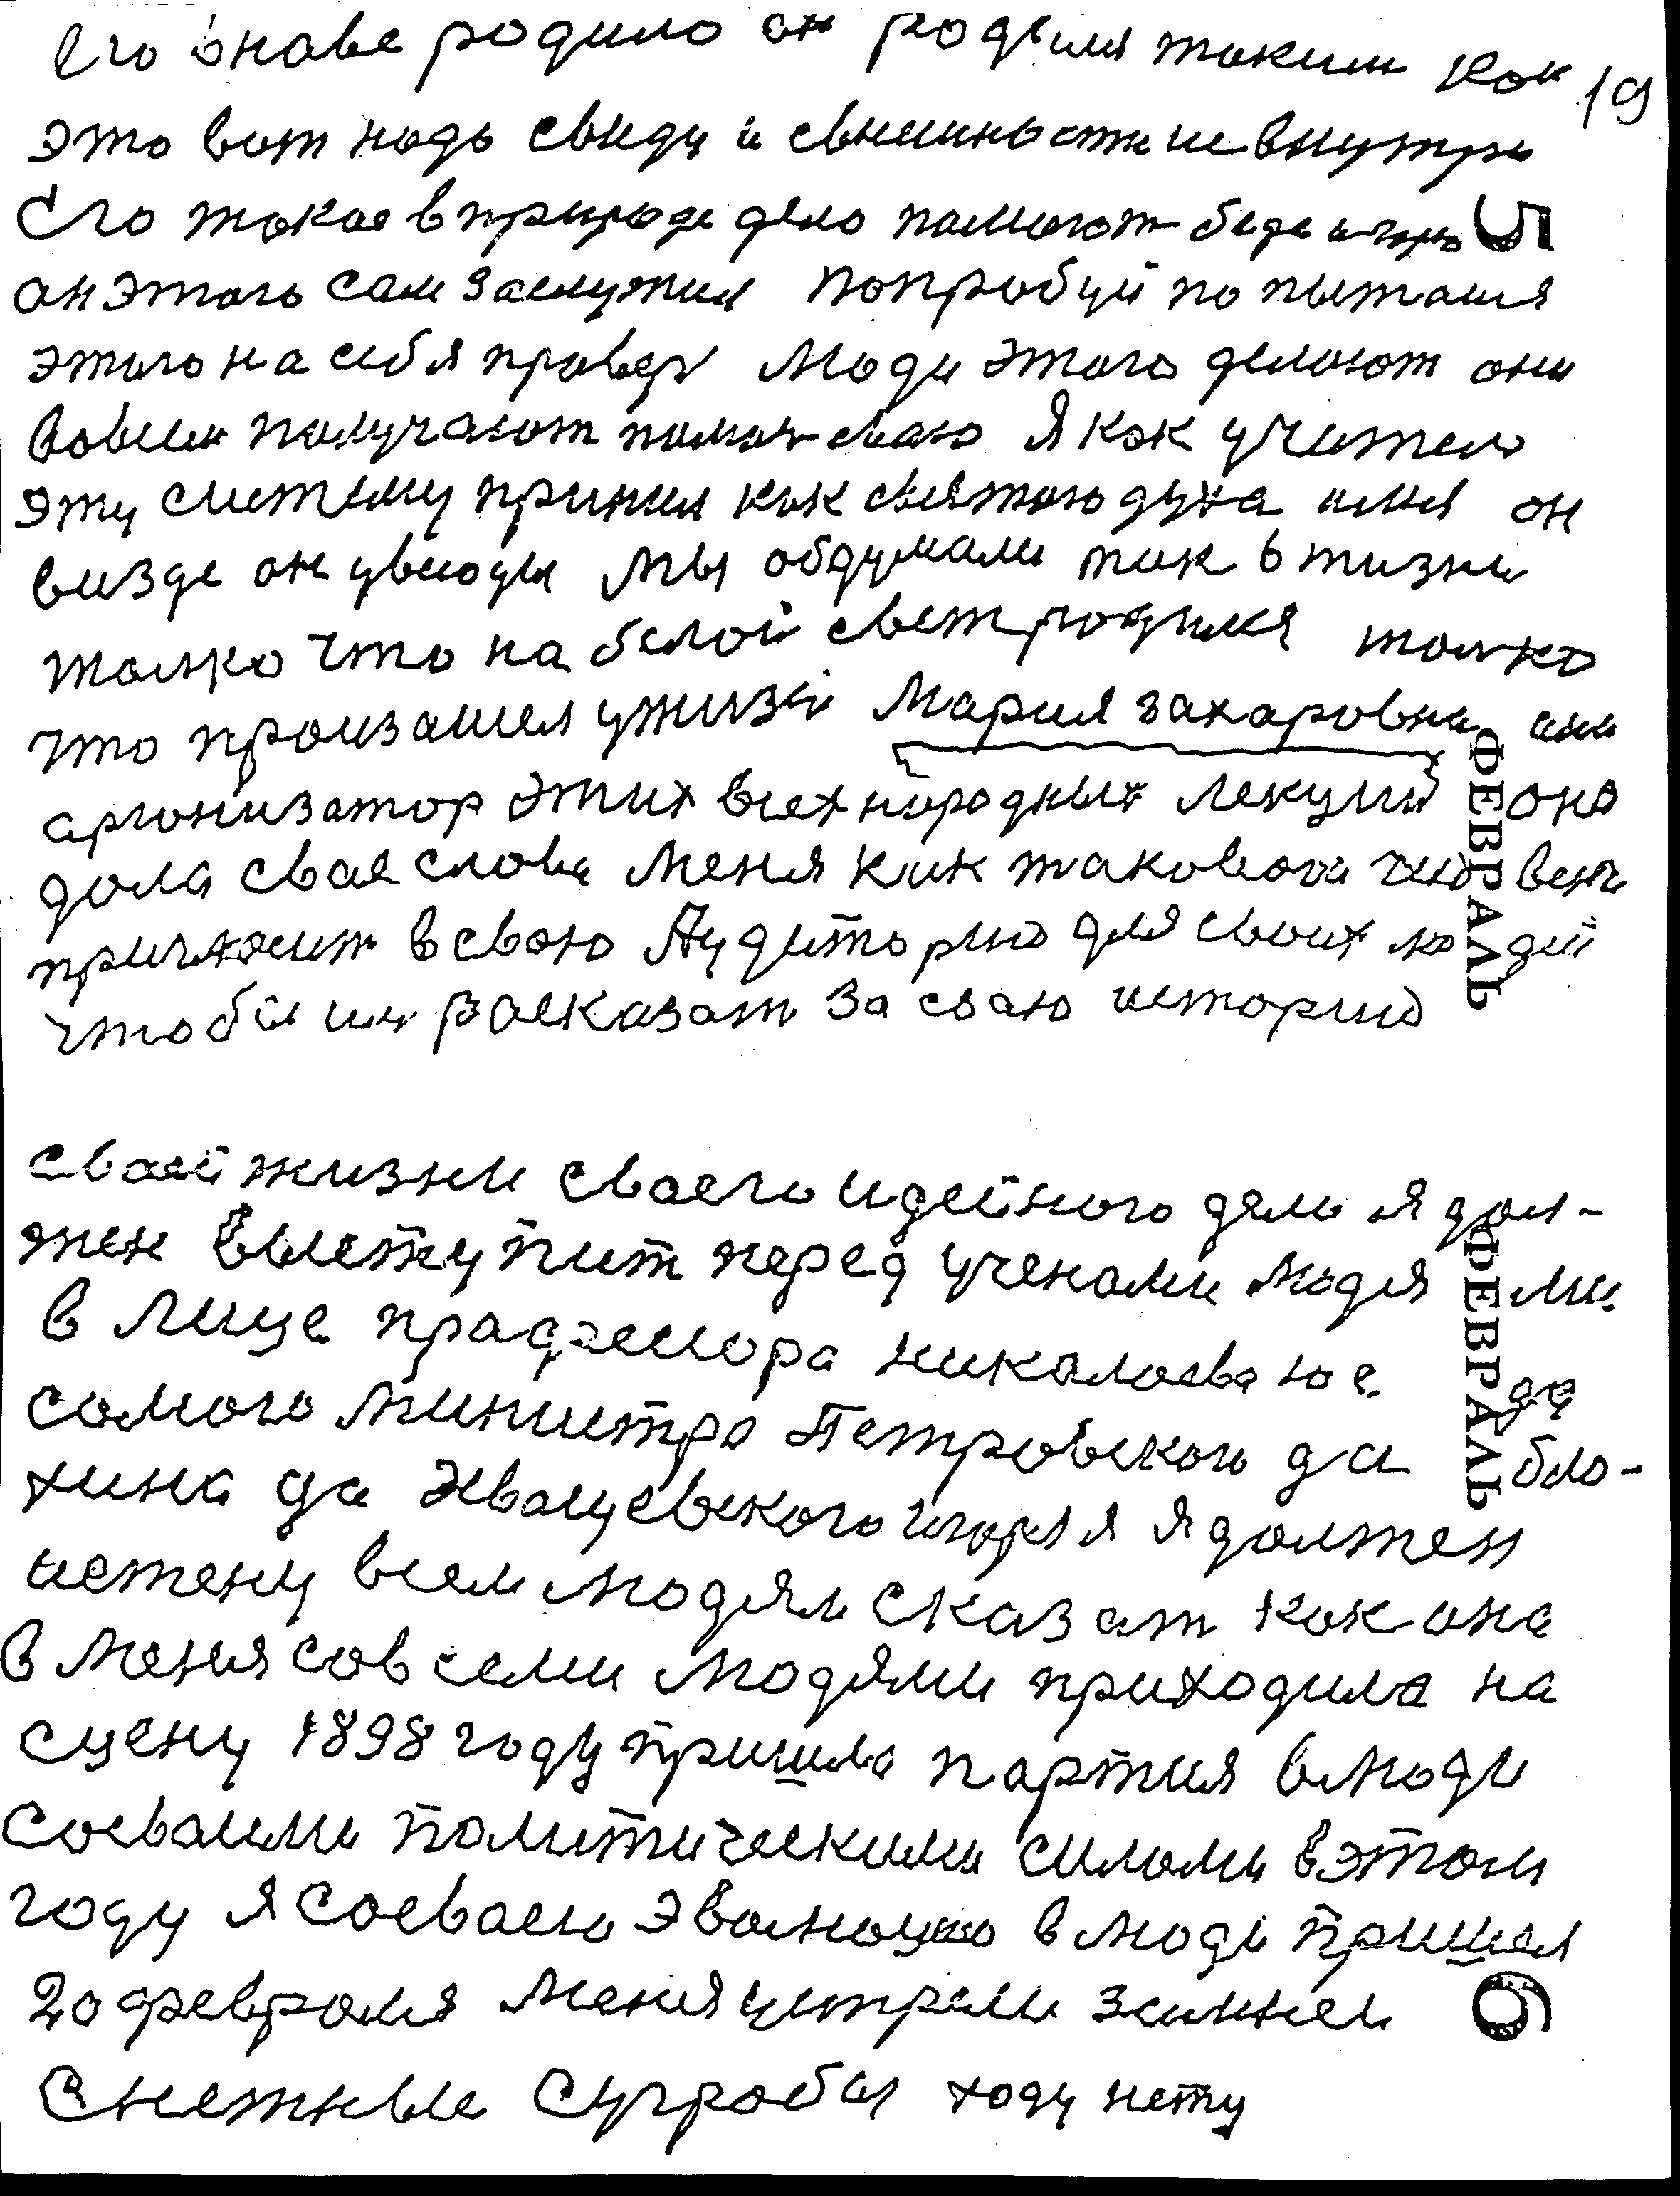 его внове родило он родился таким как 19
это вот надо свиду и свнешности и внутри
Его такое в природе дело помогают беде и горю 5
он этого сам заслужил попробуй по пытайся
этого на себя проверь люди этого делают они
вовсем получают помоч сваю Я как учитель
эту систему принял как святого духа имя он
визде он увсюды мы обдумали так в жизни
только что на белой свет родился только
что произашел ужизй Мария захаровна она
арганизатор этих всех народных лекций она
дала свае слова меня как таковога человека
пригласит в сваю Аудиторию для своих людей
чтобы им расказат за сваю историю
ФЕВРАЛЬ
сваей жизни сваего идейного дела я дол-
жен выступит перед учеными людями
в лице прафессора николаева ю с. да
самого министра Петровского да бло-
хина да Эващевского игоря я должен
истену всем людям сказат как она
в меня совсеми людями приходила на
сцену 1898 году пришла партия влюди
соеваими политическими силами в этом
году я соеваею эволюцию в люди пришел
20 февраля меня устрели зимнеи
Снежные Сугробы ходу нету
ФЕВРАЛЬ
6